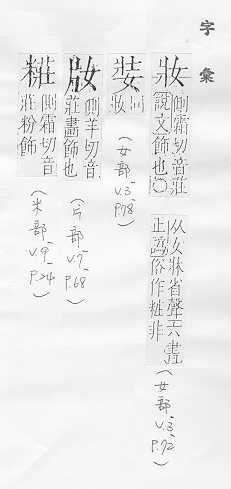 字彙
妝
側霜切音莊
說文飾也○
从女牀省聲六書
正譌俗作粧非
(女部 V.3 P.72)
娤
同
妝
(女部 V.3 P.78)
側羊切音
莊畫飾也
(片部 V.7 P.68)
粧
側霜切音
莊粉飾
(米部 V.9 P.24)